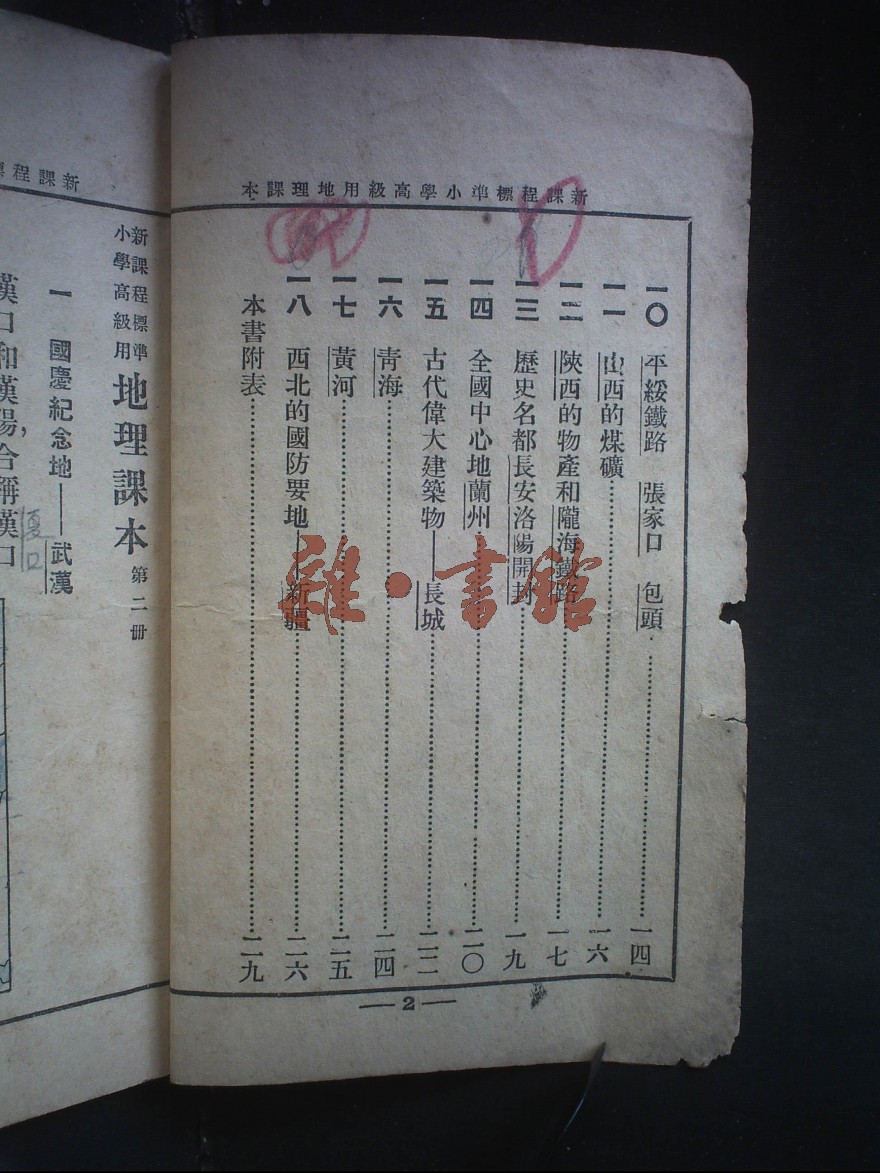 本課理地用級高學小準標程課新
一〇 平綏鐵路 張家口 包頭……一四
一一 山西的煤礦……一六
一二 陝西的物產和隴海鐵路……一七
一三 歷史名都長安洛陽開封……一九
一四 全國中心地蘭州……二〇
一五 古代偉大建築物——長城……二二
一六 青海……二四
一七 黃河……二五
一八 西北的國防要地——新疆……二六
本書附表……二九
—2—
雜·書館
程課新
新課程標準
小學高級用
地理課本 第二册
一 國慶紀念地——武漢
漢口和漢陽，合稱漢口
夏口